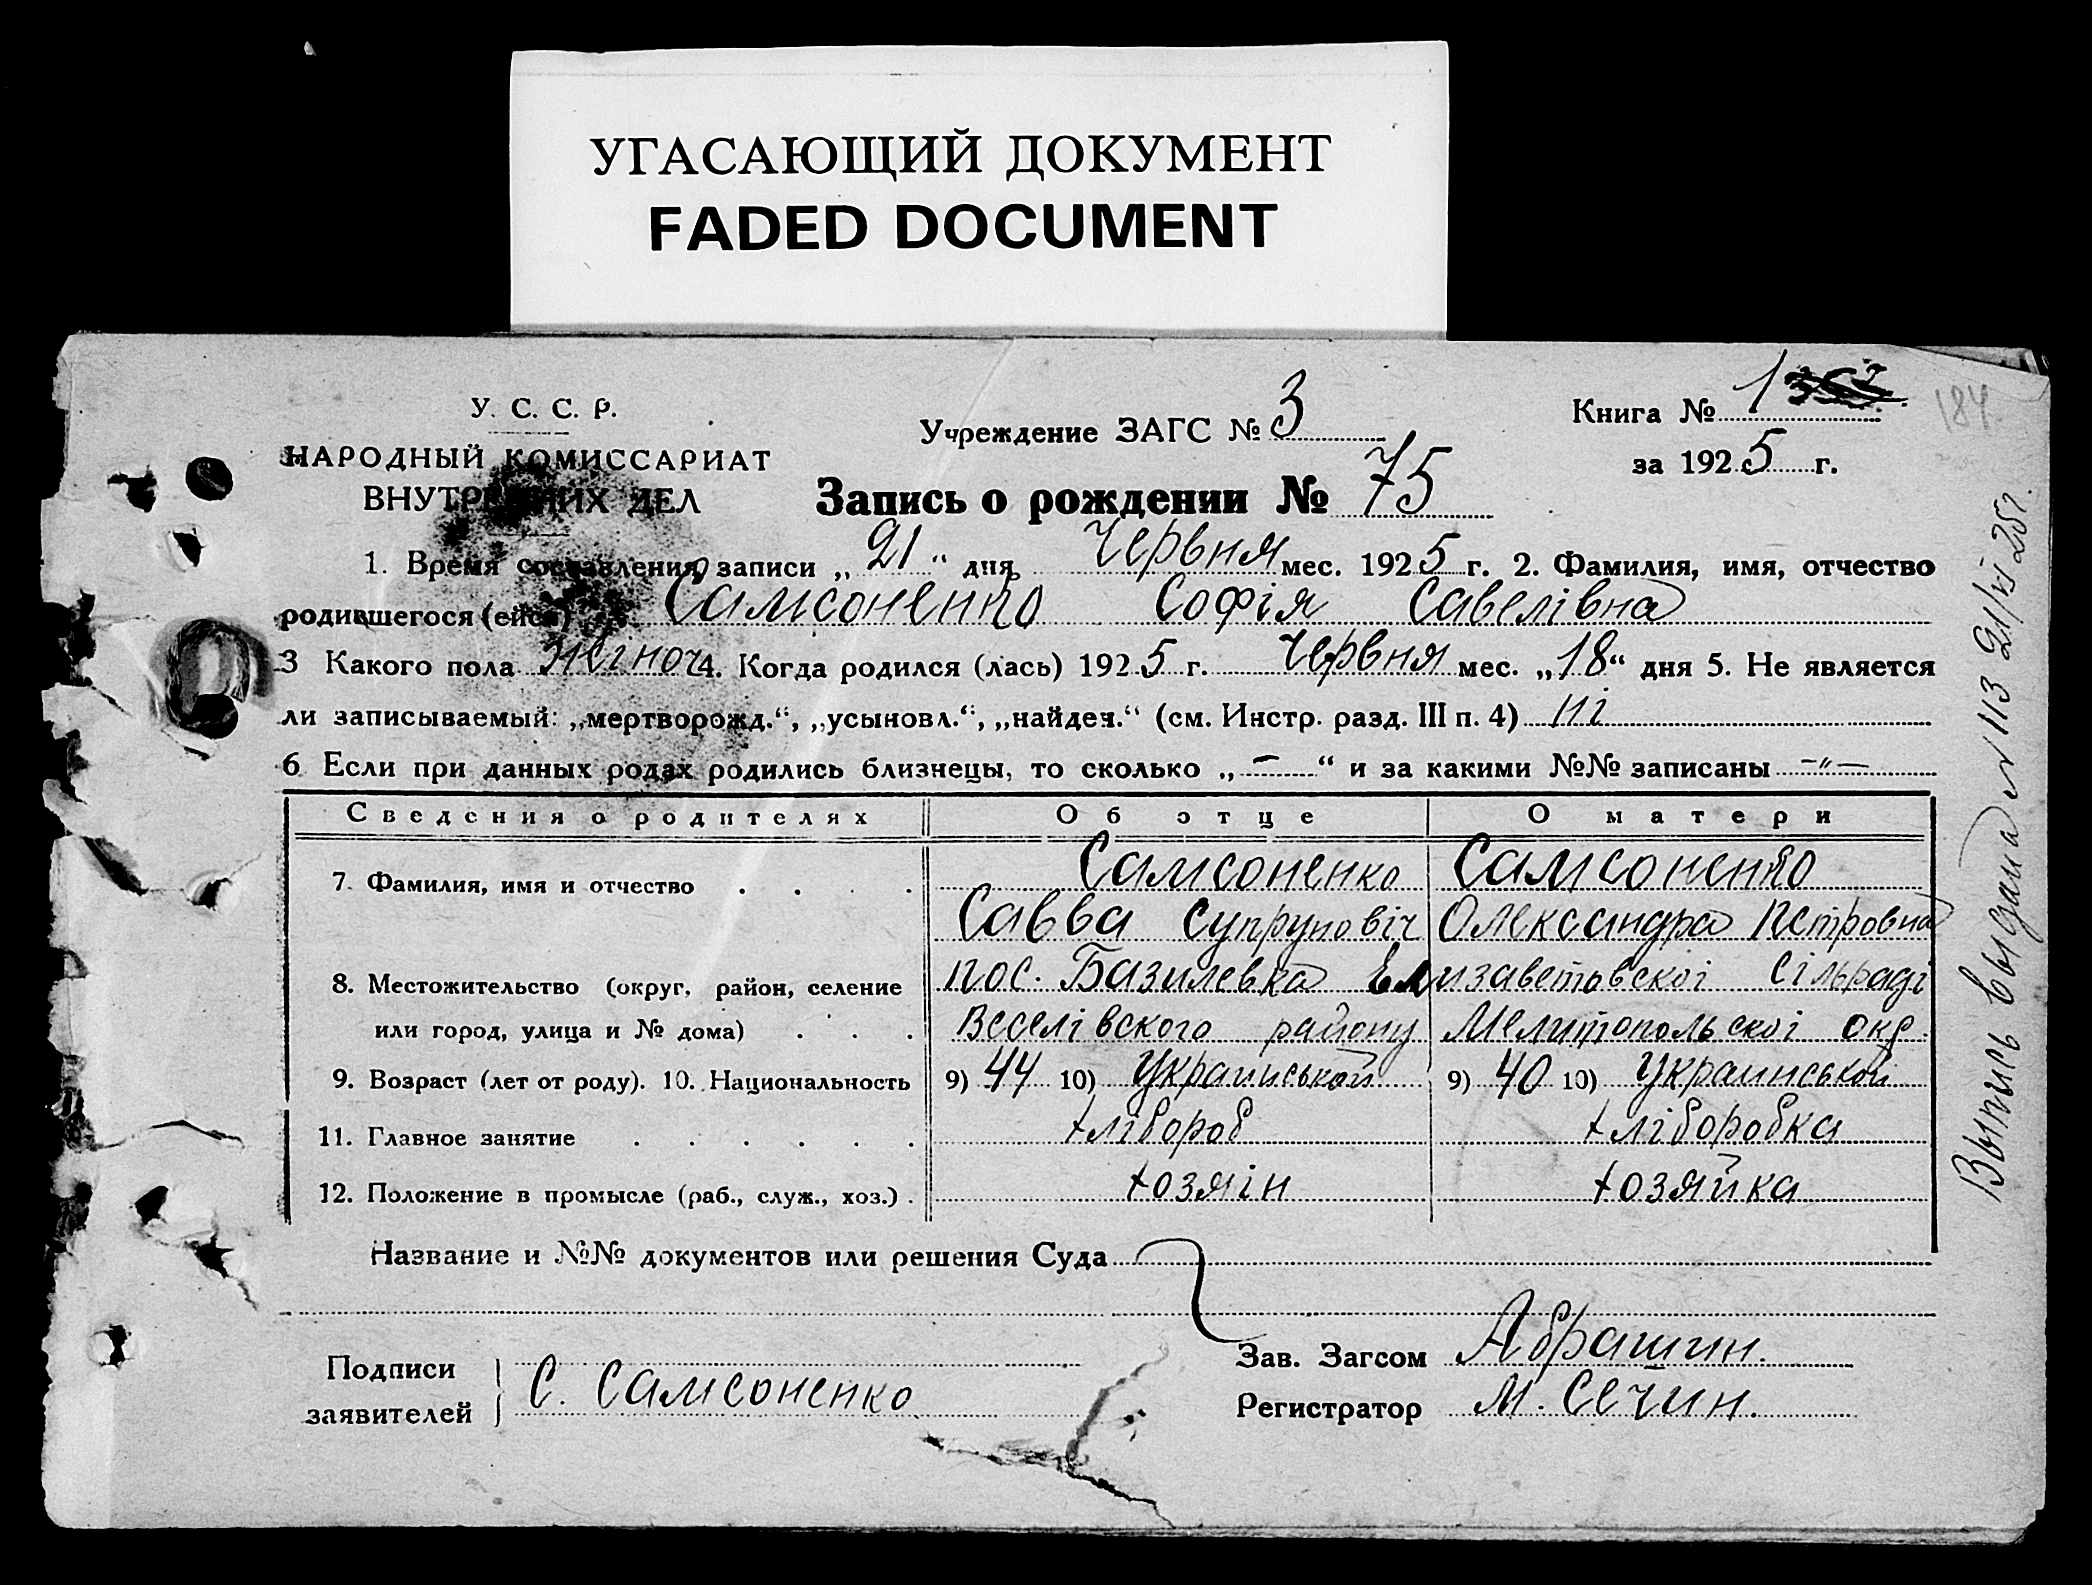 УГАСАЮЩИЙ ДОКУМЕНТ
FADED DOCUMENT
У. С. С. Р.
НАРОДНЫЙ КОМИССАРИАТ
ВНУТРЕННИХ ДЕЛ
Учреждение ЗАГС № 3
Книга № 1
184
за 1925 г.
Запись о рождении № 75
1. Время составления записи „21“ дня Червня мес. 1925 г. 2. Фамилия, имя, отчество
родившегося (ейся) Самсоненко Софія Савелівна
3 Какого пола жіноч 4. Когда родился (лась) 1925 г. Червня мес. „18“ дня 5. Не является
ли записываемый: „мертворожд.“, „усыновл.“, „найден.“ (см. Инстр. разд. III п. 4) ні
6 Если при данных родах родились близнецы, то сколько „—“ и за какими №№ записаны —„—
Сведения о родителях Об отце О матери
7. Фамилия, имя и отчество . . . . Самсоненко Самсоненко
Савва Супрунович Олександра Петровна
8. Местожительство (округ, район, селение пос. Базилевка Елизаветовскоі сільраді
или город, улица и № дома) . . . Веселівского району Мелитопольскоі окр.
9. Возраст (лет от роду). 10. Национальность 9) 44 10) Украинськой 9) 40 10) Украинськой
11. Главное занятие . . . . . . хлібороб хліборобка
12. Положение в промысле (раб., служ., хоз.) . хозяін хозяйка
Название и №№ документов или решения Суда
Зав. Загсом Абрашин.
Подписи
заявителей С. Самсоненко
Регистратор М. Сечин.
Выпись выдана № 113 21/VI 25 г.